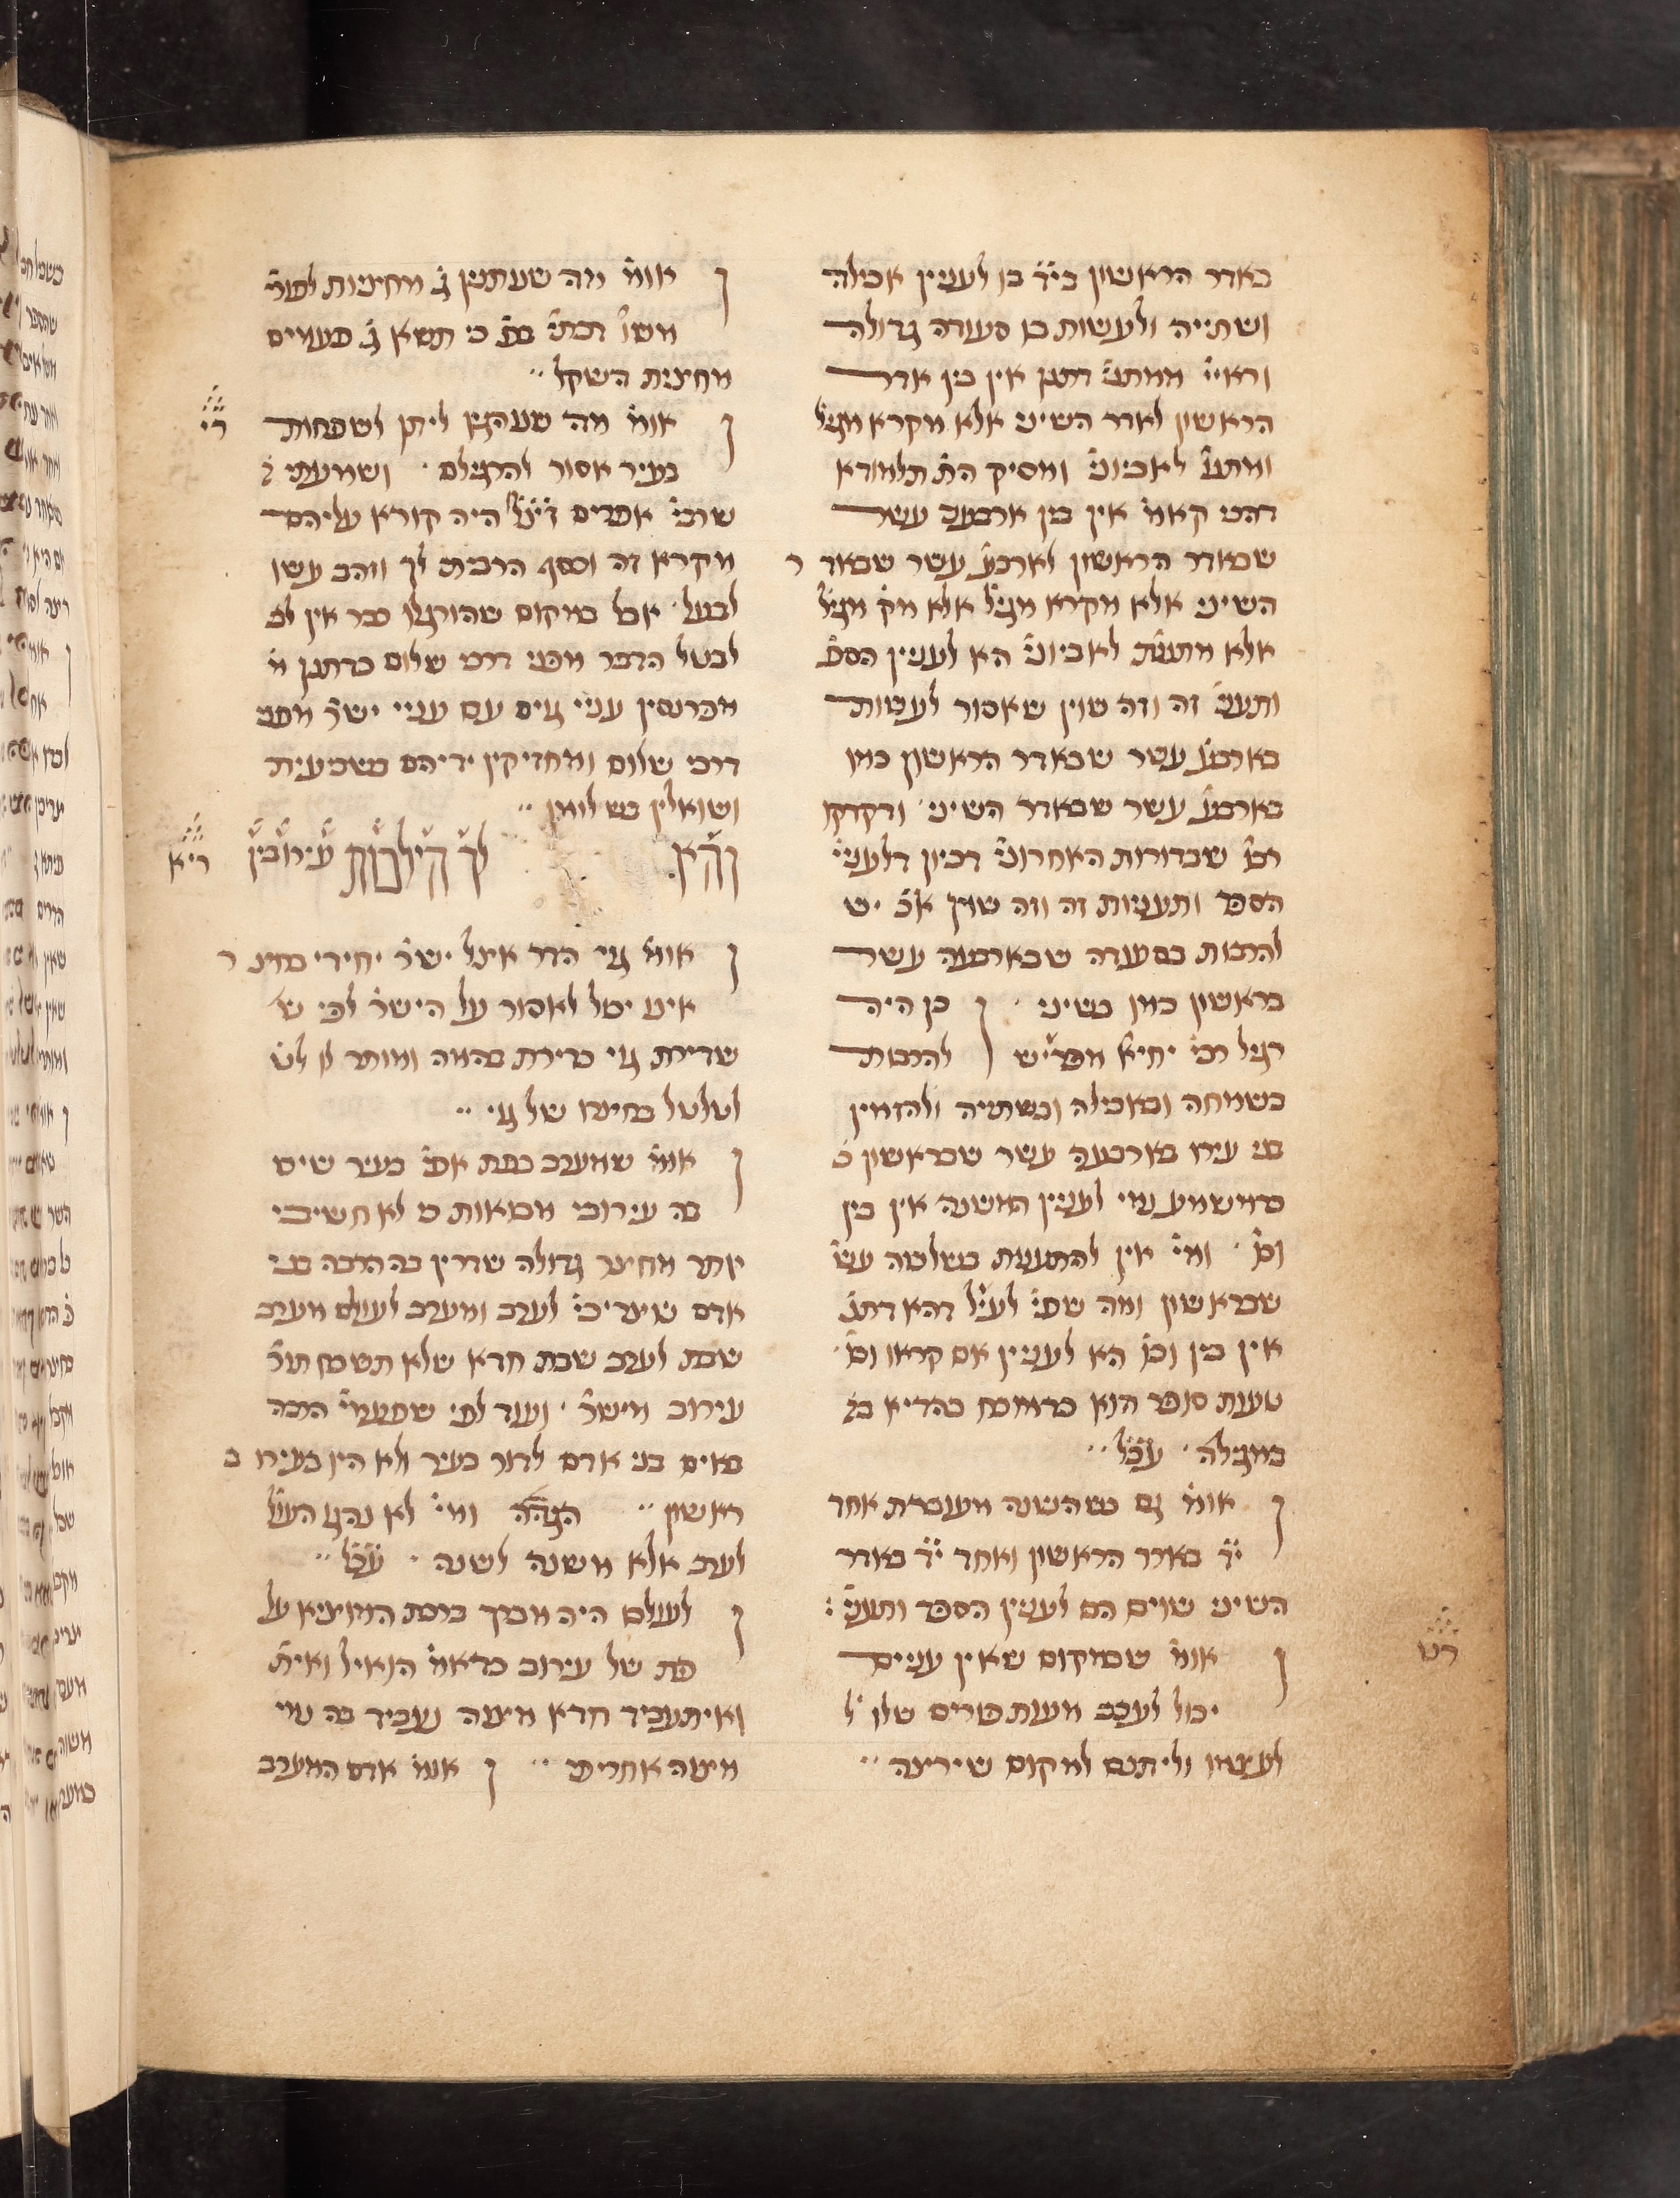 באדר הראשון בי״ד בו לעניין אכילה
ושתייה ולעשות בו סעודה גדולה
וראיי׳ ממתני׳ דתנן אין בין אדר
הראשון לאדר השיני אלא מקרא מגיל׳
ומתנ׳ לאביוני׳ ומסיק התם תלמודא
דהכי קאמ׳ אין בין ארבעה עשר
שבאדר הראשון לארבע׳ עשר שבאדר
השיני אלא מקרא מגיל׳ אלא מק׳ מגיל׳
אלא מתנת לאביוני׳ הא לעניין הספ׳
ותעני׳ זה וזה שוין שאסור לעשות
בארבע׳ עשר שבאדר הראשון כמו
בארבע׳ עשר שבאדר השיני׳ ודקדקו
רבו׳ שבדורות האחרוני׳ דכיון דלעני׳
הספד ותעניות זה וזה שוין א״כ יש
להרבות בסעודה שבארבעה עשר
בראשון כמו בשיני׳ ן כן היה
רגיל רבי׳ יחיא׳ מפרי״ש להרבות
בשמחה ובאכילה ובשתיה ולהזמין
בני עירו בארבעה עשר שבראשון כ׳
כדמשמע נמי לעניין המשנה אין בין
וכו׳ ומי׳ אין להתענות בשלשה עש׳
שבראשון ומה שפי׳ לעי״ל דהא דתנ׳
אין בין וכו׳ הא לעניין אם קראו וכו׳
טעות סופר הוא כדמוכח בהדיא בג׳
במגילה׳ עכ״ל
ן אומ׳ גם כשהשנה מעוברת אחד
י״ד באדר הראשון ואחד י״ד באדר
השיני שוים הם לעניין הספד ותעני׳
ן אומ׳ שבמקום שאין עניים רט
יכול לעכב מעות פורים שלו ל׳
לעצמו וליתנם למקום שירצה
ן אומ׳ מה שנותנין ג׳ מחיצות לפור׳
משו׳ דכתי׳ בפ׳ כי תשא ג׳ פעמים
מחצית השקל
ן אומ׳ מה שנהגו ליתן לשפחות רי
בעיר אסור להרגילם׳ ושמעתי
שרבי׳ אפרים זי״צל היה קורא עליהם
מקרא זה וכסף הרביתי לך וזהב עשו
לבעל׳ אבל במקום שהורגלו כבר אין לב׳
לבטל הדבר מפני דרכי שלום כדתנן מ׳
מפרנסין עניי גוים עם עניי ישר׳ מפני
דרכי שלום ומחזיקין ידיהם בשביעית
ושואלין בשלומן
והן לך הילכות עירובין ריא
ן אומ׳ גוי הדר אצל ישר׳ יחידי בחצר
אינו יכול לאסור על הישר׳ לפי ש׳
שדירת גוי כדירת בהמה ומותר לו לט׳
לטלטל בחיצרו של גוי
ן אומ׳ שמערב בפת אפי׳ בעיר שיש
בה עירובי מבואות כו לא חשיבי
יותר מחיצר גדולה שדרין בה הרבה בני
אדם שצריכי׳ לערב ומערב לעולם מערב
שבת לערב שבת חדא שלא תשכח תור׳
עירוב מישר׳׳ ועוד לפי שפעמי׳ הרבה
באים בני אדם לדור בעיר ולא היו בעירוב
ראשון הגהה ומי׳ לא נהגו העול׳
לערב אלא משנה לשנה׳ עכ״ל
ן לעולם היה מברך ברכת המוציא על
פת של עירוב כדאמ׳ הואיל ואית׳
ואיתעביד חדא מיצוה נעביד בה נמי
מיצוה אחריתי ן אומ׳ אדם המערב